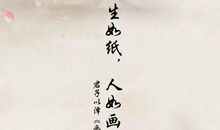 生如纸，
人如画
君子以泽《画